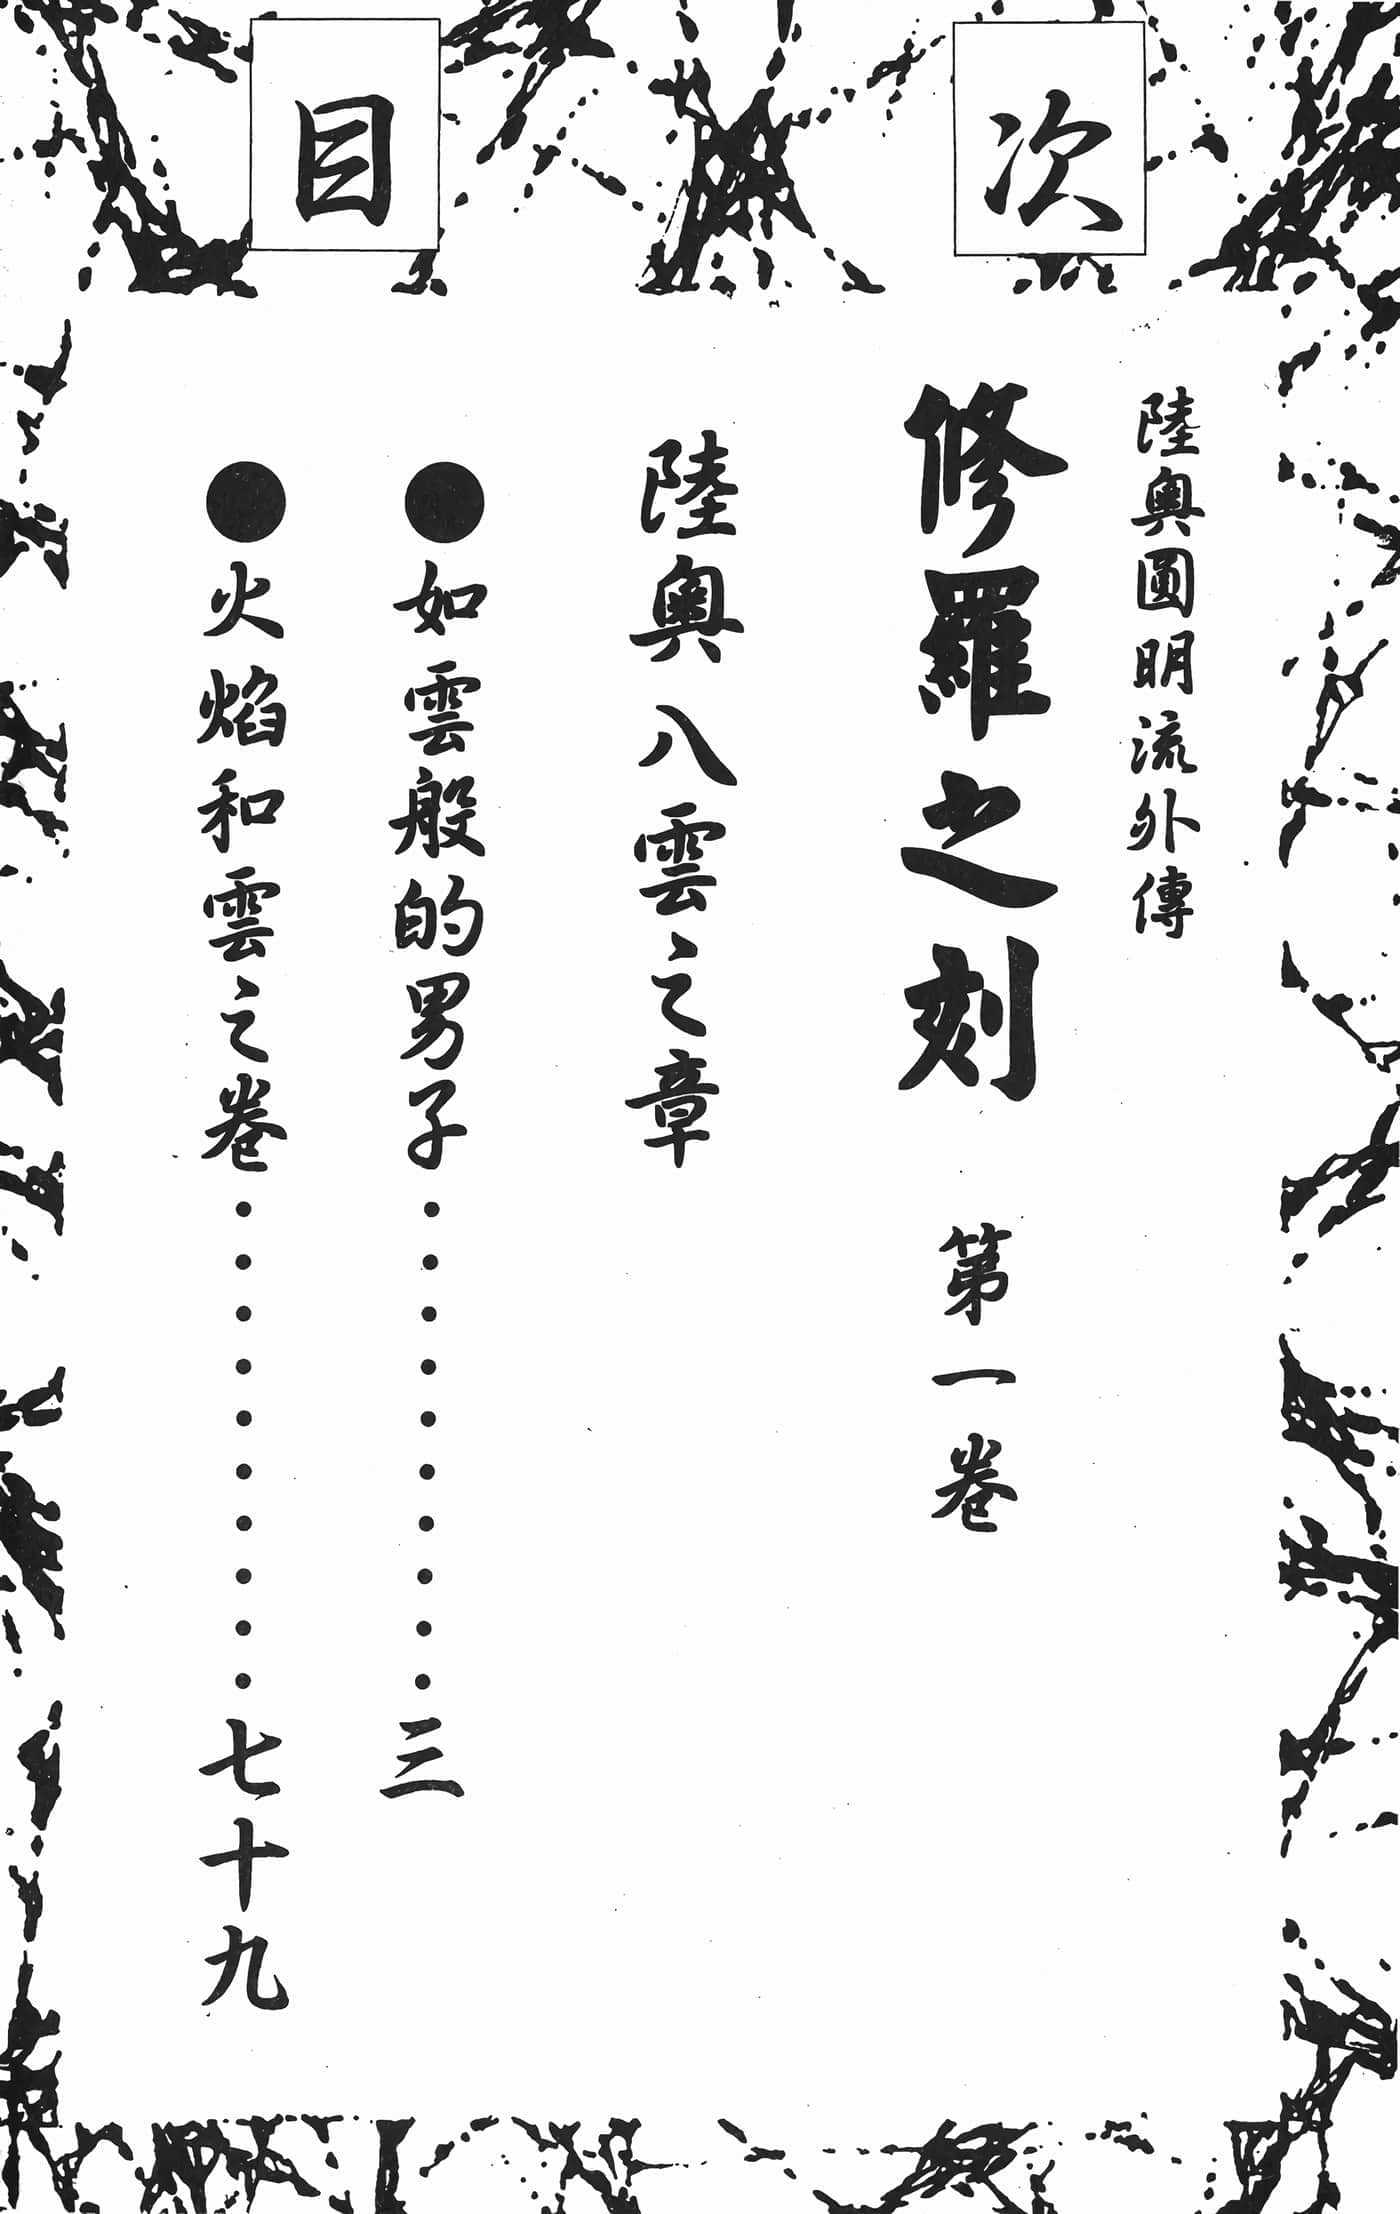 目次
陸奧圓明流外傳
修羅之刻 第一卷
陸奧八雲之章
●如雲般的男子‧‧‧‧‧‧‧‧‧‧三
●火焰和雲之卷‧‧‧‧‧‧‧‧‧‧七十九